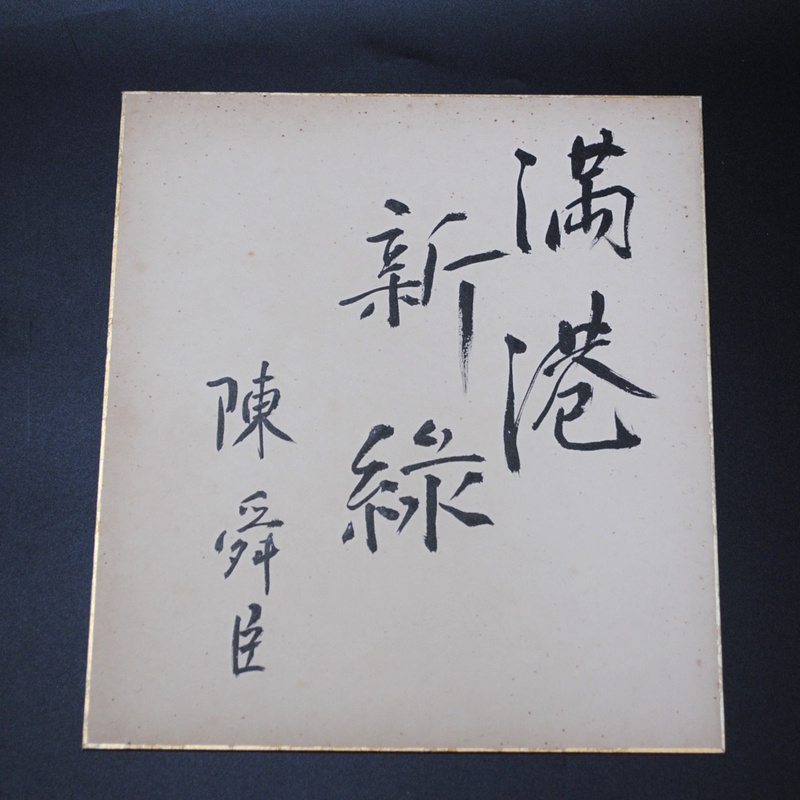 満港
新緑
陳舜臣